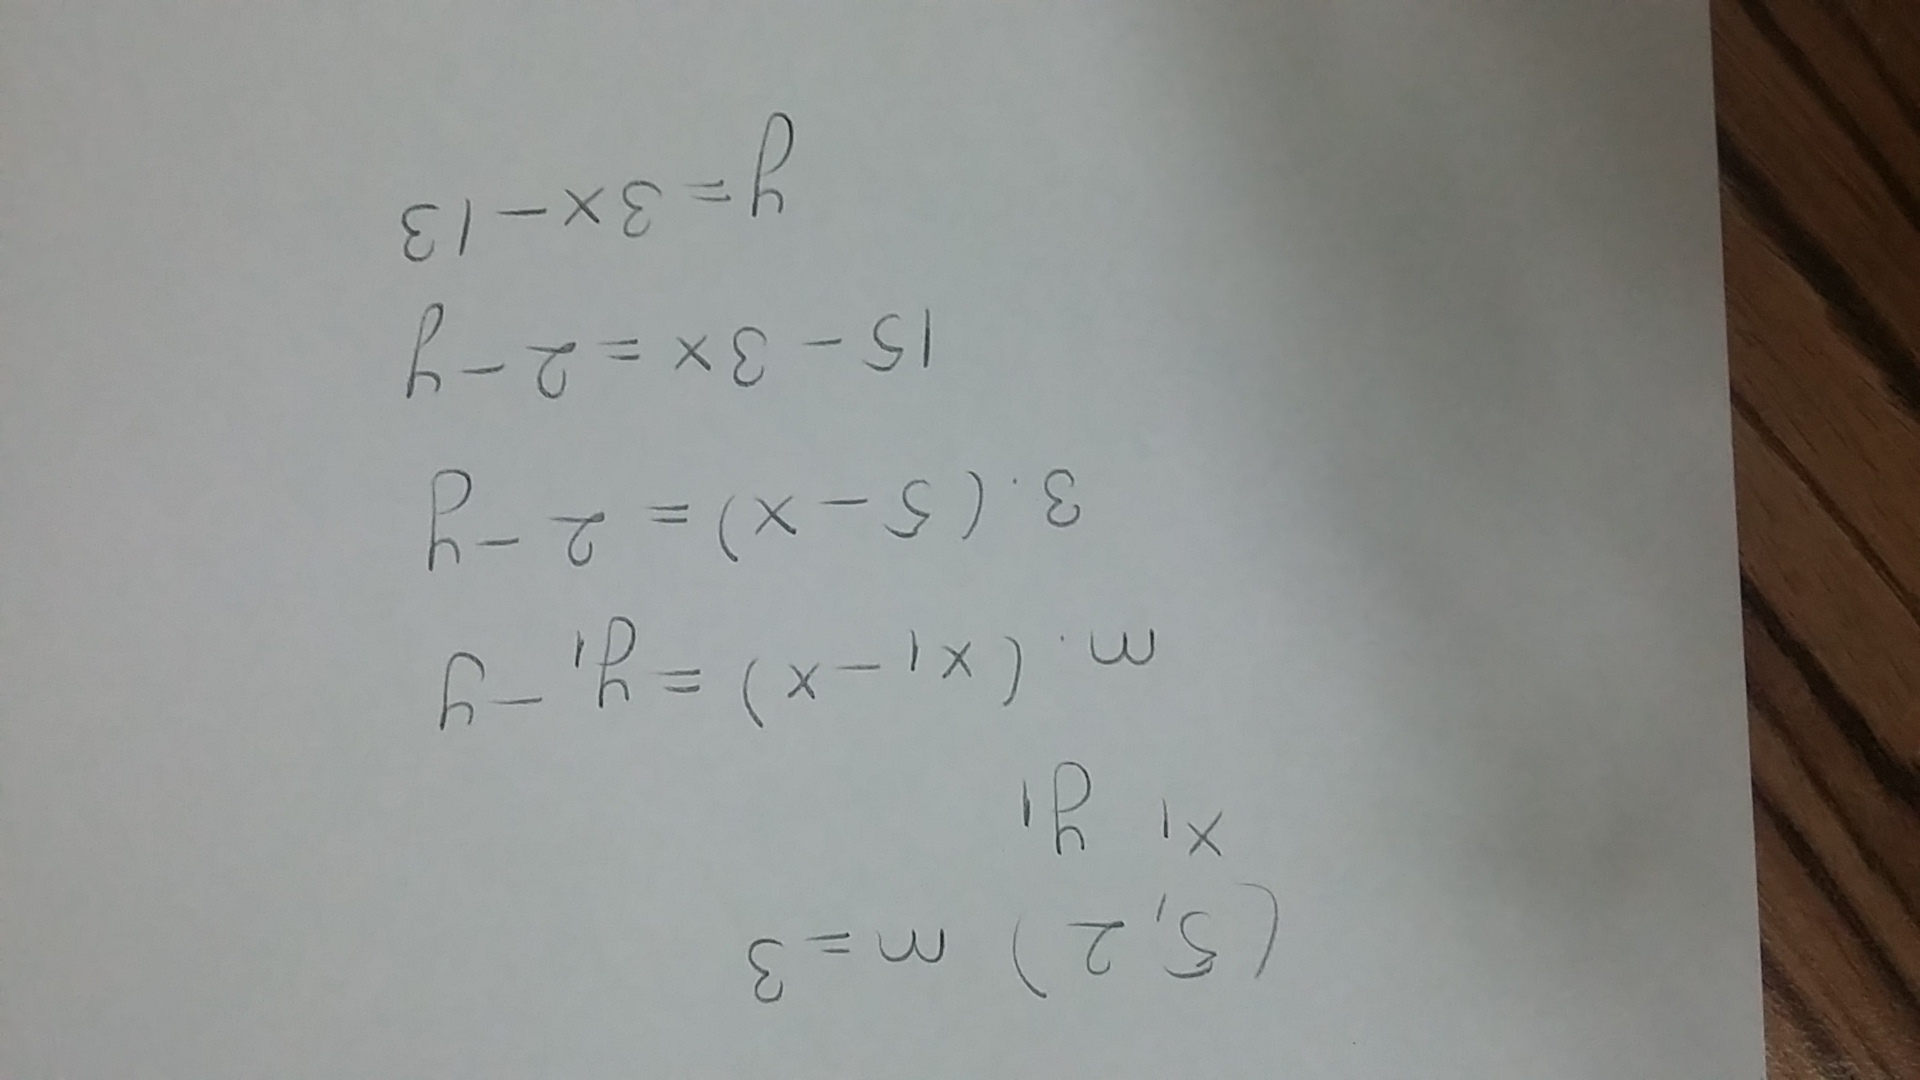 (5,2) m=3
x₁ y₁
m.(x₁-x)=y₁-y
3.(5-x)=2-y
15-3x=2-y
y=3x-13